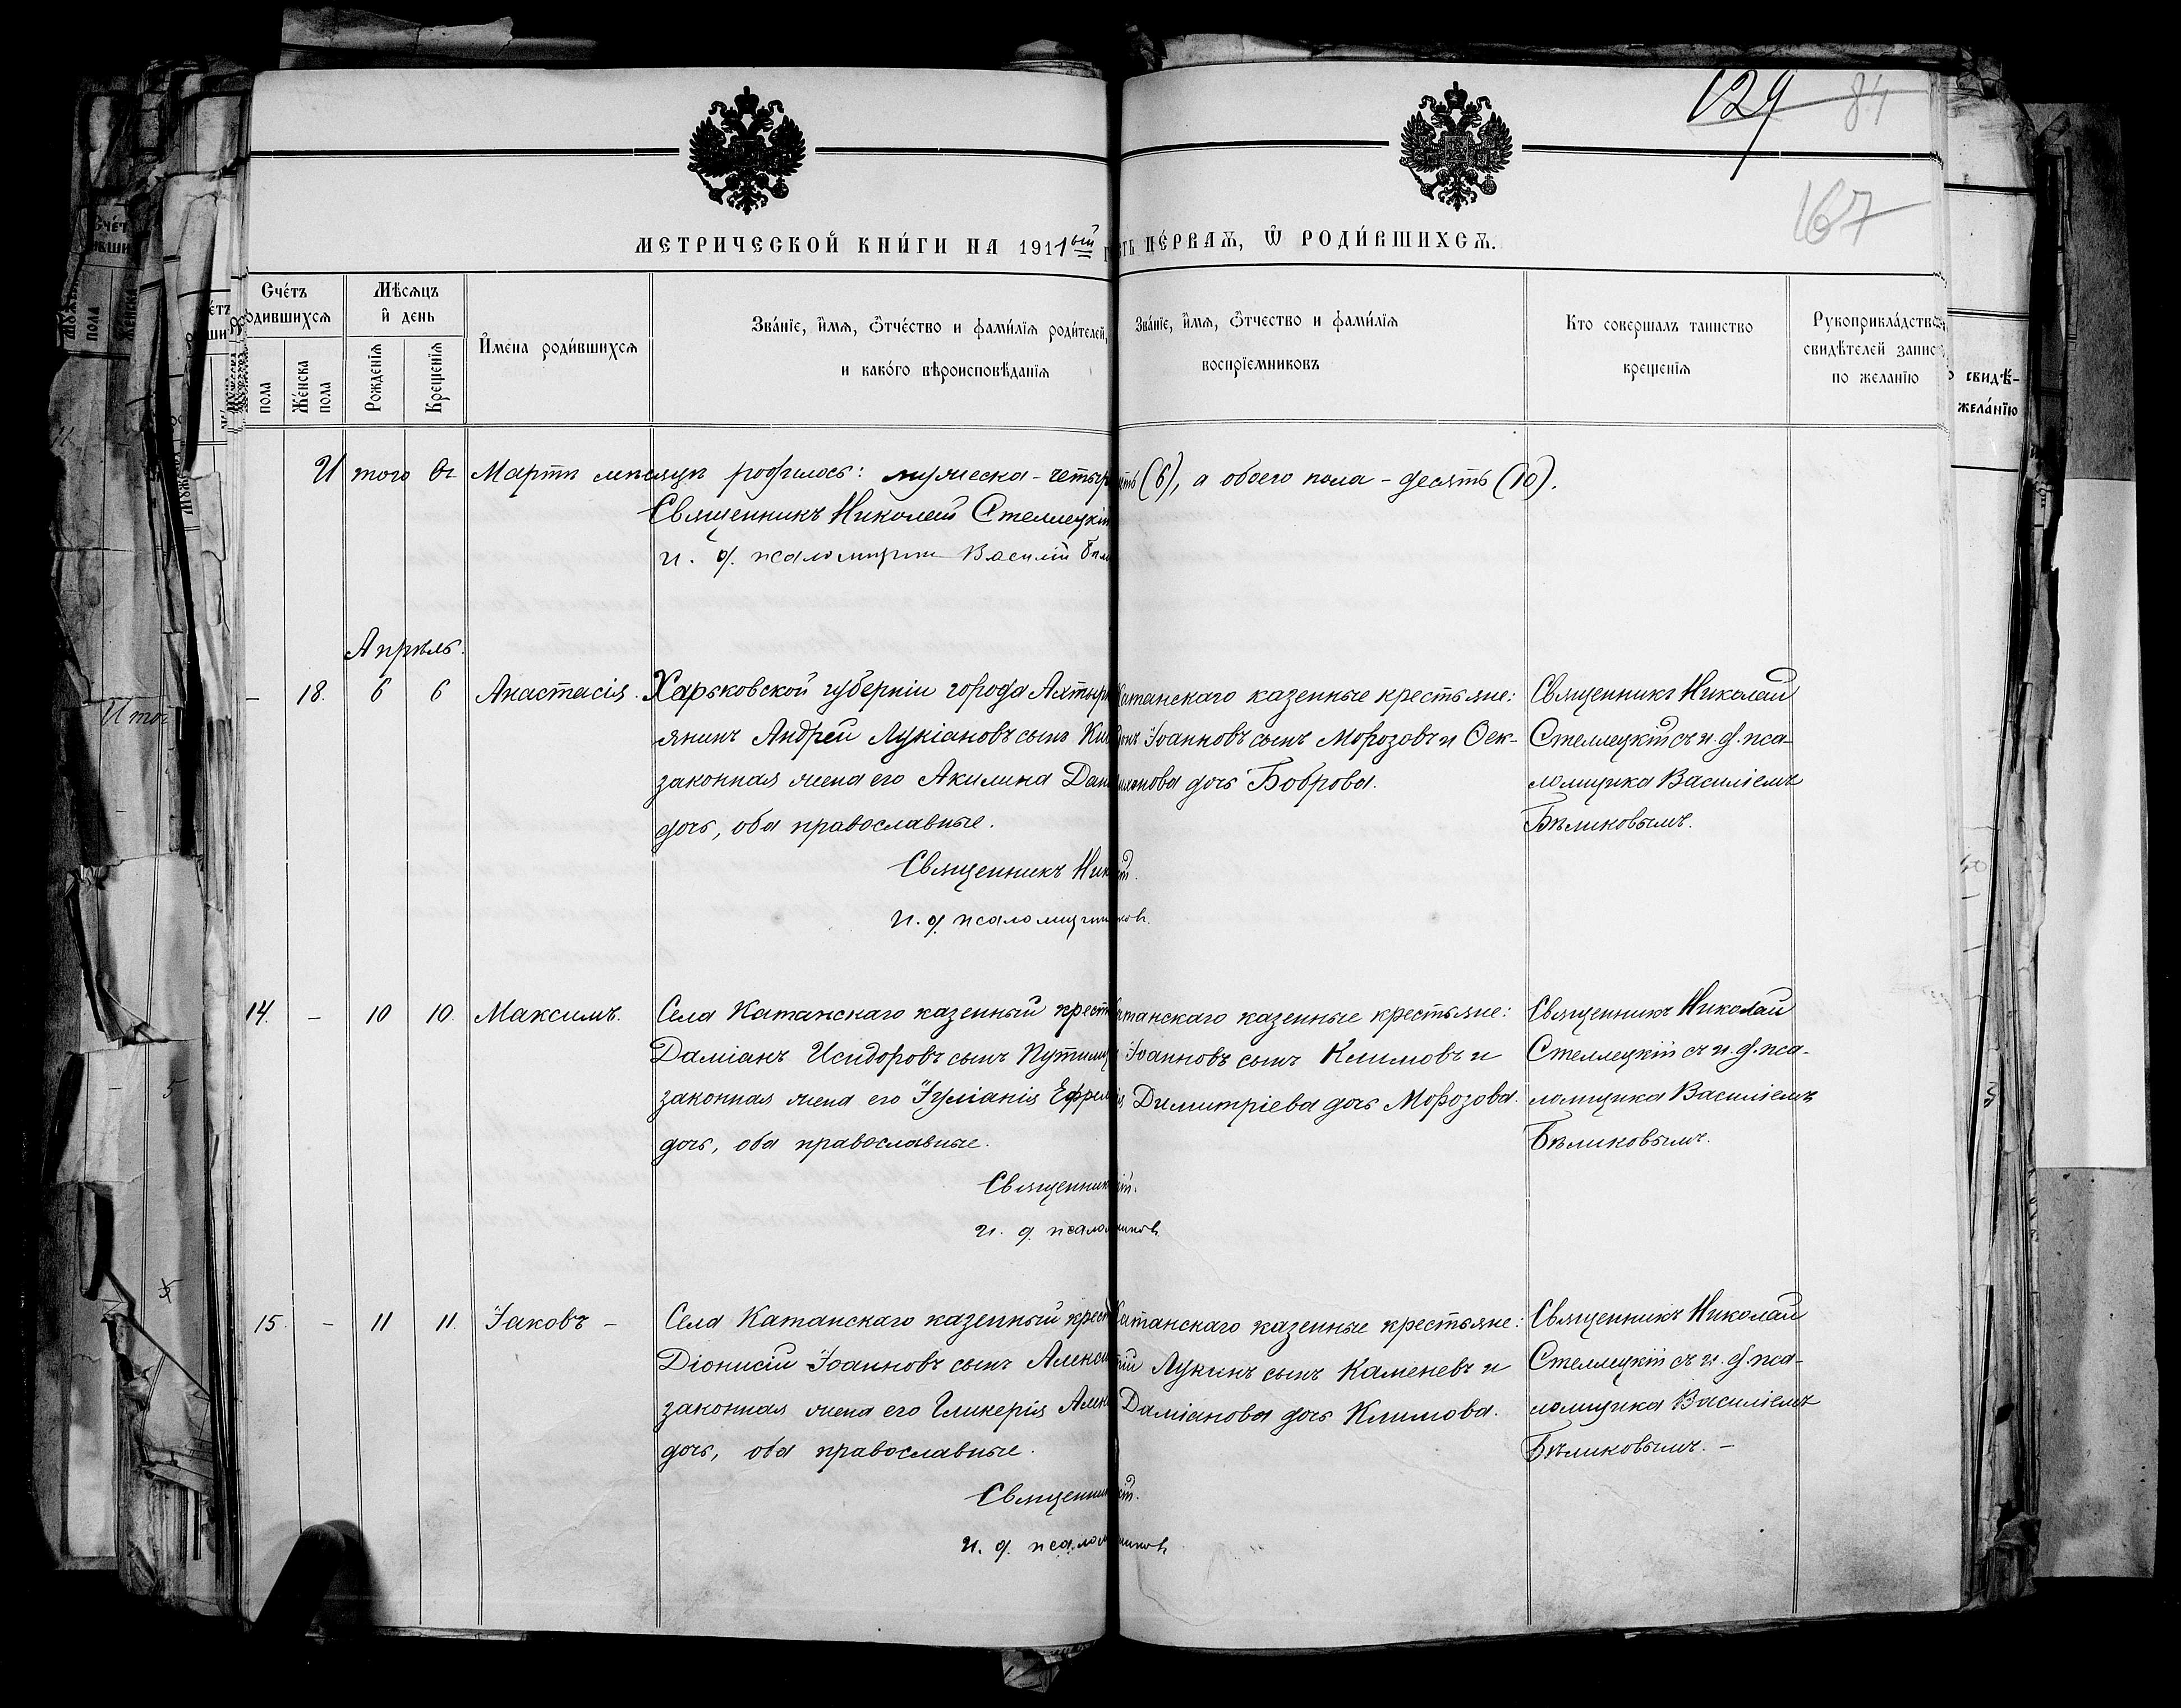 129 84
167
МЕТРИЧЕСКОЙ КНИ́ГИ НА 1911ый
ПЕ́РВАѦ, Ѿ РОДИ́ВШИХСѦ.
Сче́тъ
родившихсѧ
пола
Же́нска
пола
Мѣсѧцъ
и҆ день
Рожденїѧ
Крещенїѧ
И҆мена роди́вшихсѧ
Зва́нїе, и҆́мѧ, ѻ҆́тче́ство и фами́лїѧ роди́телей,
и како́го вѣроисповѣ́данїѧ
Зва́нїе, и҆́мѧ, ѻ҆́тчество и фами́лїѧ
воспрїемниковъ
Кто совершалъ таинство
крещенїѧ
Рукоприкла́дство
свидѣтелей
по жела́нїю
И того въ Мартѣ мѣсяцѣ родилось: мужеска - четыр
(6), а обоего пола - десять (10).
Священникъ Николай Стеллецкій
и. д. псаломщика Василій
Апрѣль.
- 18. 6 6 Анастасія. Харьковской губерніи города Ахтыр
янинъ Андрей Лукіановъ сынъ
законная жена его Акилина Дан
дочь, оба православные.
Священникъ Ник
и. д. псаломщи
Катанскаго казенные крестьяне:
Іоанновъ сынъ Морозовъ и Ѳек-
дочь Боброва.
Священникъ Николай
Стеллецкій съ и. д. пса-
ломщика Василіемъ
Бѣликовымъ.
14. - 10 10. Максимъ. Села Катанскаго казенный крест
Даміанъ Исидоровъ сынъ Путим
законная жена его Іуліанія Ефрем
дочь, оба православные.
Священник
и. д. псало
Катанскаго казенные крестьяне:
Іоанновъ сынъ Климовъ и
Димитріева дочь Морозова.
Священникъ Николай
Стеллецкій съ и. д. пса-
ломщика Василіемъ
Бѣликовымъ.
15. - 11 11. Іаковъ - Села Катанскаго казенный крест
Діонисій Іоанновъ сынъ Алекс
законная жена его Гликерія
дочь, оба православные.
Священник
и. д. псалом
Катанскаго казенные крестьяне:
Лукинъ сынъ Каменевъ и
Даміанова дочь Климова.
Священникъ Николай
Стеллецкій съ и. д. пса-
ломщика Василіемъ
Бѣликовымъ. -